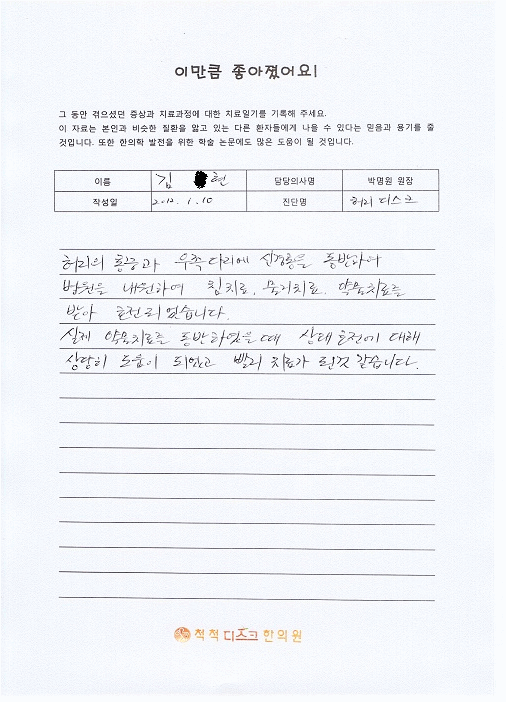 이만큼 좋아졌어요!
그 동안 겪으셨던 증상과 치료과정에 대한 치료일기를 기록해 주세요.
이 자료는 본인과 비슷한 질환을 앓고 있는 다른 환자들에게 나을 수 있다는 믿음과 용기를 줄
것입니다. 또한 한의학 발전을 위한 학술 논문에도 많은 도움이 될 것입니다.
이름 김 현 담당의사명 박명원 원장
작성일 2012. 1. 10 진단명 허리 디스크
허리의 통증과 우측다리에 신경통을 동반하여
병원을 내원하여 침치료, 물리치료, 약물치료를
받아 호전되었습니다.
실제 약물치료를 동반하였을때 상태호전에 대해
상당히 도움이 되었고 빨리 치료가 된것 같습니다.
척척디스크한의원